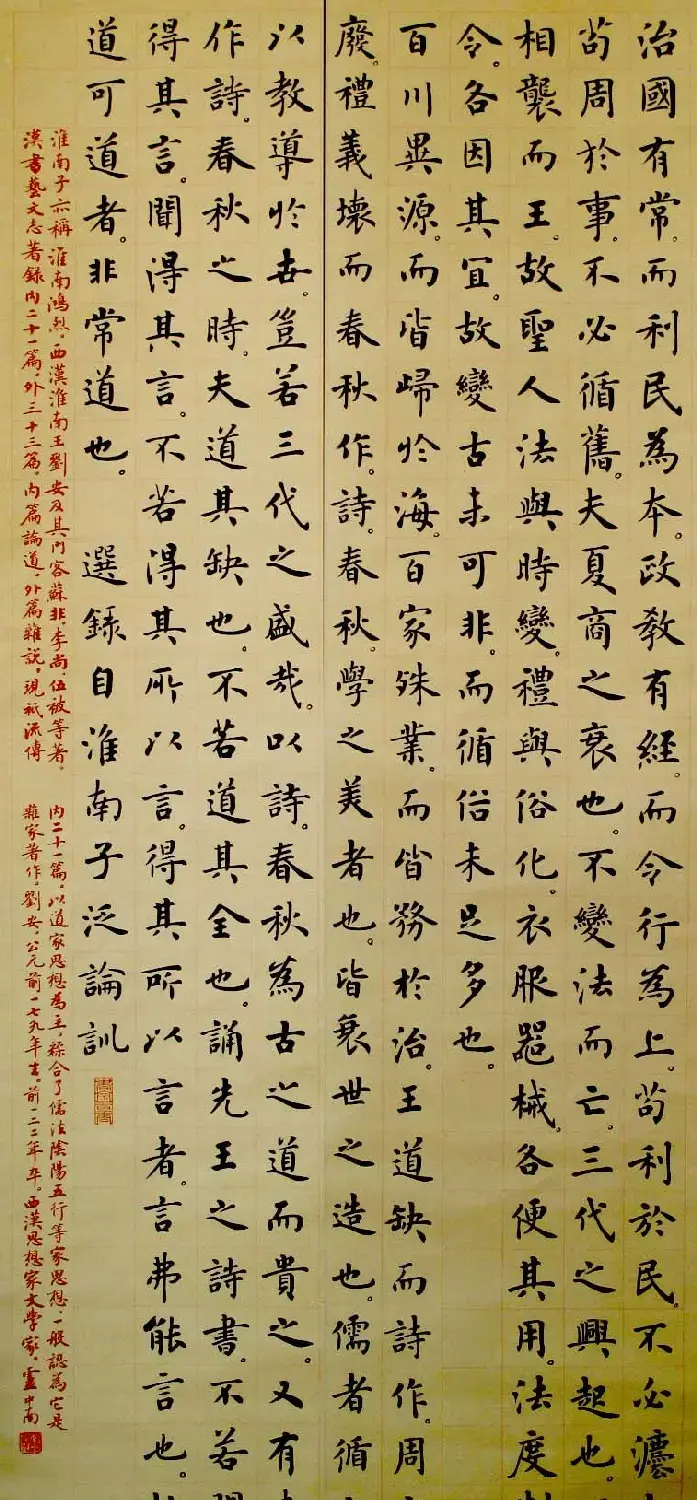 治國有常。而利民為本。政敎有經。而令行為上。苟利於民。不必灋
苟周於事。不必循舊。夫夏商之衰也。不變法而亡。三代之興起也。
相襲而王。故聖人法與時變。禮與俗化。衣服器械。各便其用。法度
令。各因其宜。故變古未可非。而循俗未足多也。
百川異源。而皆歸於海。百家殊業。而皆務於治。王道缺而詩作。周
廢。禮義壞而春秋作。詩。春秋。學之美者也。皆衰世之造也。儒者循
以教導於世。豈若三代之盛哉。以詩。春秋為古之道而貴之。又有
作詩。春秋之時。夫道其缺也。不若道其全也。誦先王之詩書。不若
得其言。聞得其言。不若得其所以言。得其所以言者。言弗能言也。
道可道者。非常道也。 選錄自淮南子泛論訓
淮南子亦稱淮南鴻烈。西漢淮南王劉安及其門客蘇非。李尚。伍被等著。
漢書藝文志著錄內二十一篇。外三十三篇。內篇論道。外篇雜說。現衹流傳
內二十一篇。以道家思想為主。綜合了儒法陰陽五行等家思想。一般認為它是
雜家著作。劉安。公元前一七九年生。前一二二年卒。西漢思想家文學家。盧中南